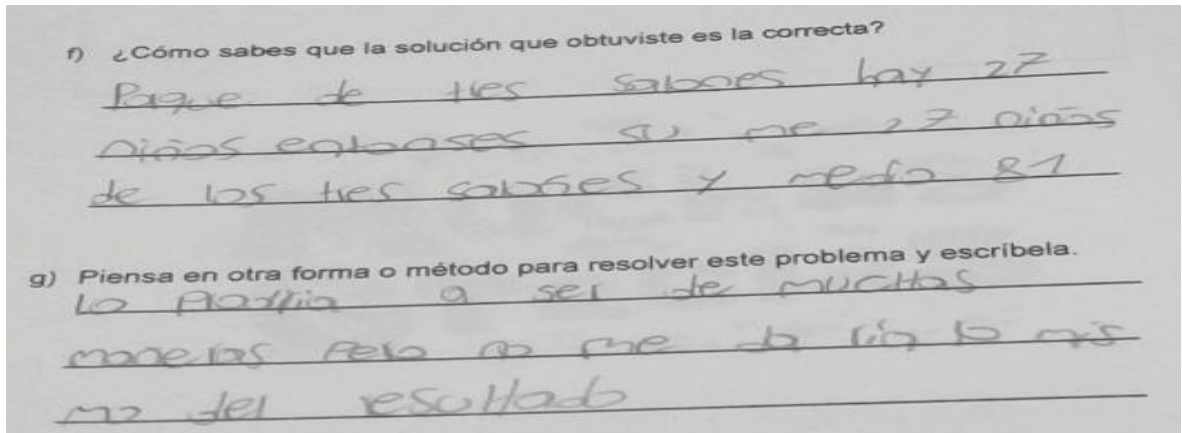 f) ¿Cómo sabes que la solución que obtuviste es la correcta?
Paque de tres sabores hay 27
niños entonses su me 27 niños
de los tres sabores y me dio 81
g) Piensa en otra forma o método para resolver este problema y escríbela.
Lo a ser de muchas
maneras pero no me da ría lo mis
mo del resultado